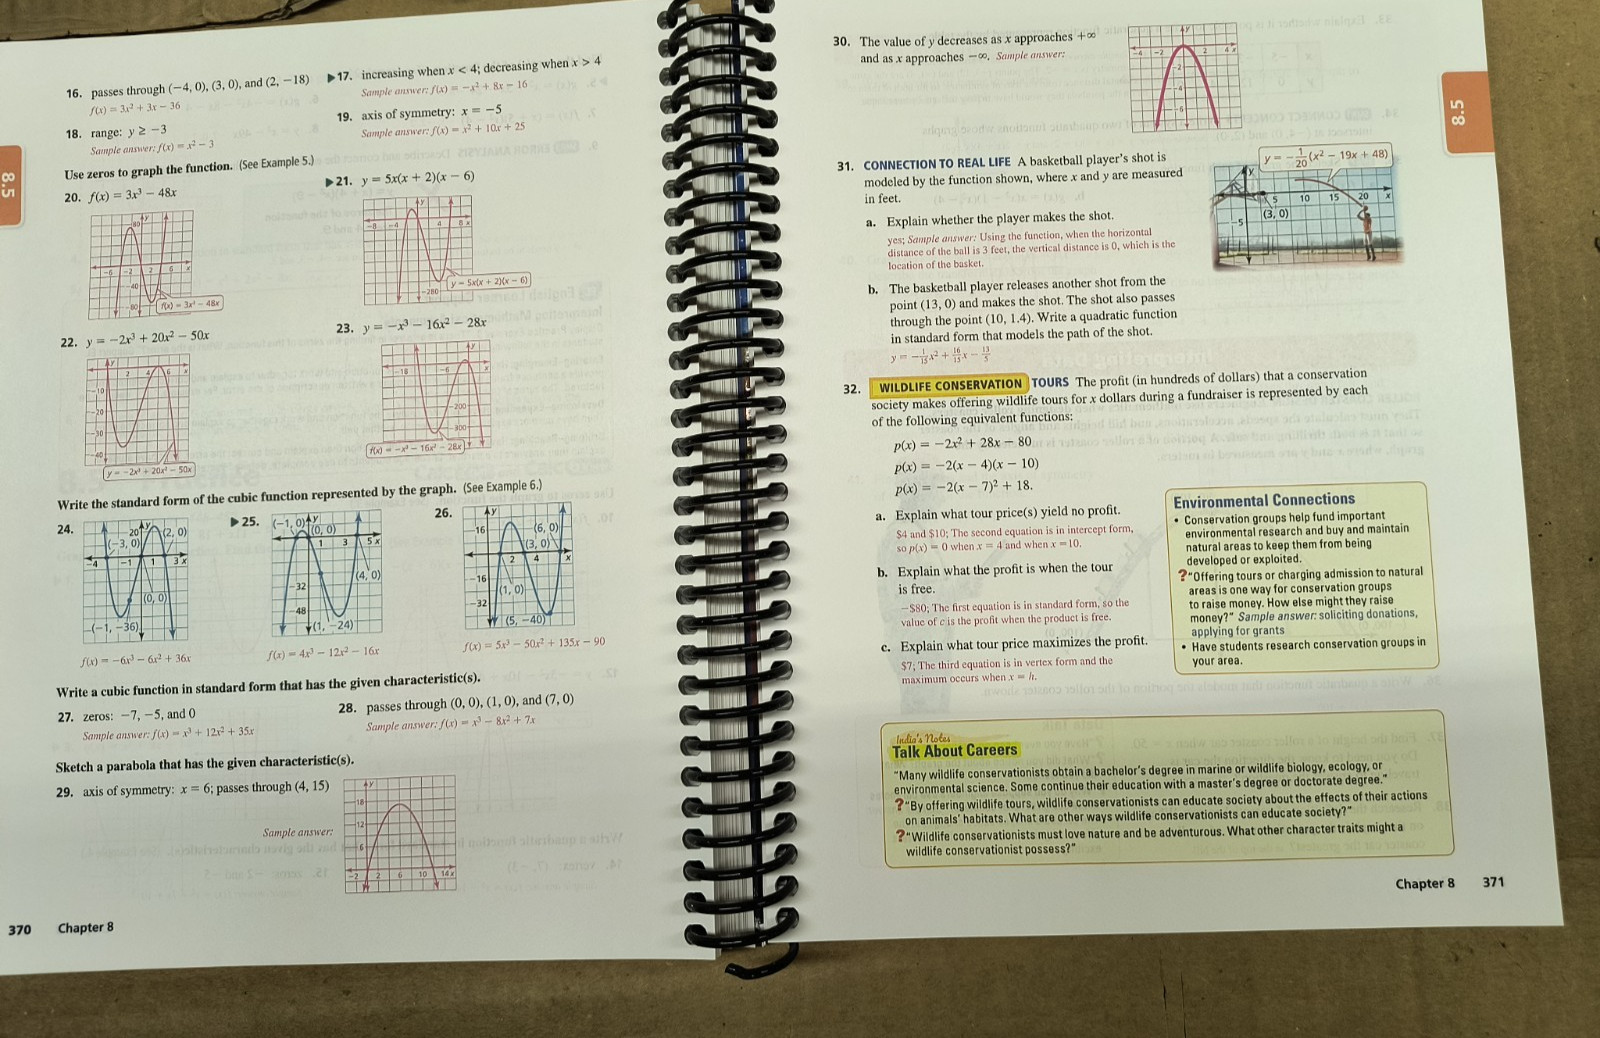 16. passes through (−4, 0), (3, 0), and (2, −18)
f(x) = 3x² + 3x − 36
▶17. increasing when x < 4; decreasing when x > 4
Sample answer: f(x) = −x² + 8x − 16
18. range: y ≥ −3
Sample answer: f(x) = x² − 3
19. axis of symmetry: x = −5
Sample answer: f(x) = x² + 10x + 25
8.5
Use zeros to graph the function. (See Example 5.)
20. f(x) = 3x³ − 48x
▶21. y = 5x(x + 2)(x − 6)
f(x) = 3x³ − 48x
y = 5x(x + 2)(x − 6)
22. y = −2x³ + 20x² − 50x
23. y = −x³ − 16x² − 28x
y = −2x³ + 20x² − 50x
f(x) = −x³ − 16x² − 28x
Write the standard form of the cubic function represented by the graph. (See Example 6.)
24.
20 y (2, 0)
(−3, 0)
−4 −1 1 3 x
(0, 0)
(−1, −36)
f(x) = −6x³ − 6x² + 36x
▶25.
(−1, 0) y
(0, 0)
1 3 5 x
−32 (4, 0)
48
(1, −24)
f(x) = 4x³ − 12x² − 16x
26.
y
16 (6, 0)
(3, 0)
2 4 x
−16
(1, 0)
−32
(5, −40)
f(x) = 5x³ − 50x² + 135x − 90
Write a cubic function in standard form that has the given characteristic(s).
27. zeros: −7, −5, and 0
Sample answer: f(x) = x³ + 12x² + 35x
28. passes through (0, 0), (1, 0), and (7, 0)
Sample answer: f(x) = x³ − 8x² + 7x
Sketch a parabola that has the given characteristic(s).
29. axis of symmetry: x = 6; passes through (4, 15)
Sample answer:
y
18
12
6
−2 2 6 10 14 x
370 Chapter 8
30. The value of y decreases as x approaches +∞
and as x approaches −∞. Sample answer:
y
−4 −2 2 4 x
−2
−4
−6
8.5
31. CONNECTION TO REAL LIFE A basketball player's shot is
modeled by the function shown, where x and y are measured
in feet.
y = −1/20(x² − 19x + 48)
y
5 10 15 20 x
−5 (3, 0)
a. Explain whether the player makes the shot.
yes; Sample answer: Using the function, when the horizontal
distance of the ball is 3 feet, the vertical distance is 0, which is the
location of the basket.
b. The basketball player releases another shot from the
point (13, 0) and makes the shot. The shot also passes
through the point (10, 1.4). Write a quadratic function
in standard form that models the path of the shot.
y = −1/15x² + 16/15x − 13/5
32. WILDLIFE CONSERVATION TOURS The profit (in hundreds of dollars) that a conservation
society makes offering wildlife tours for x dollars during a fundraiser is represented by each
of the following equivalent functions:
p(x) = −2x² + 28x − 80
p(x) = −2(x − 4)(x − 10)
p(x) = −2(x − 7)² + 18.
a. Explain what tour price(s) yield no profit.
$4 and $10; The second equation is in intercept form,
so p(x) = 0 when x = 4 and when x = 10.
b. Explain what the profit is when the tour
is free.
−$80; The first equation is in standard form, so the
value of c is the profit when the product is free.
c. Explain what tour price maximizes the profit.
$7; The third equation is in vertex form and the
maximum occurs when x = h.
Environmental Connections
• Conservation groups help fund important
environmental research and buy and maintain
natural areas to keep them from being
developed or exploited.
? "Offering tours or charging admission to natural
areas is one way for conservation groups
to raise money. How else might they raise
money?" Sample answer: soliciting donations,
applying for grants
• Have students research conservation groups in
your area.
India's Notes
Talk About Careers
"Many wildlife conservationists obtain a bachelor's degree in marine or wildlife biology, ecology, or
environmental science. Some continue their education with a master's degree or doctorate degree."
? "By offering wildlife tours, wildlife conservationists can educate society about the effects of their actions
on animals' habitats. What are other ways wildlife conservationists can educate society?"
? "Wildlife conservationists must love nature and be adventurous. What other character traits might a
wildlife conservationist possess?"
Chapter 8 371